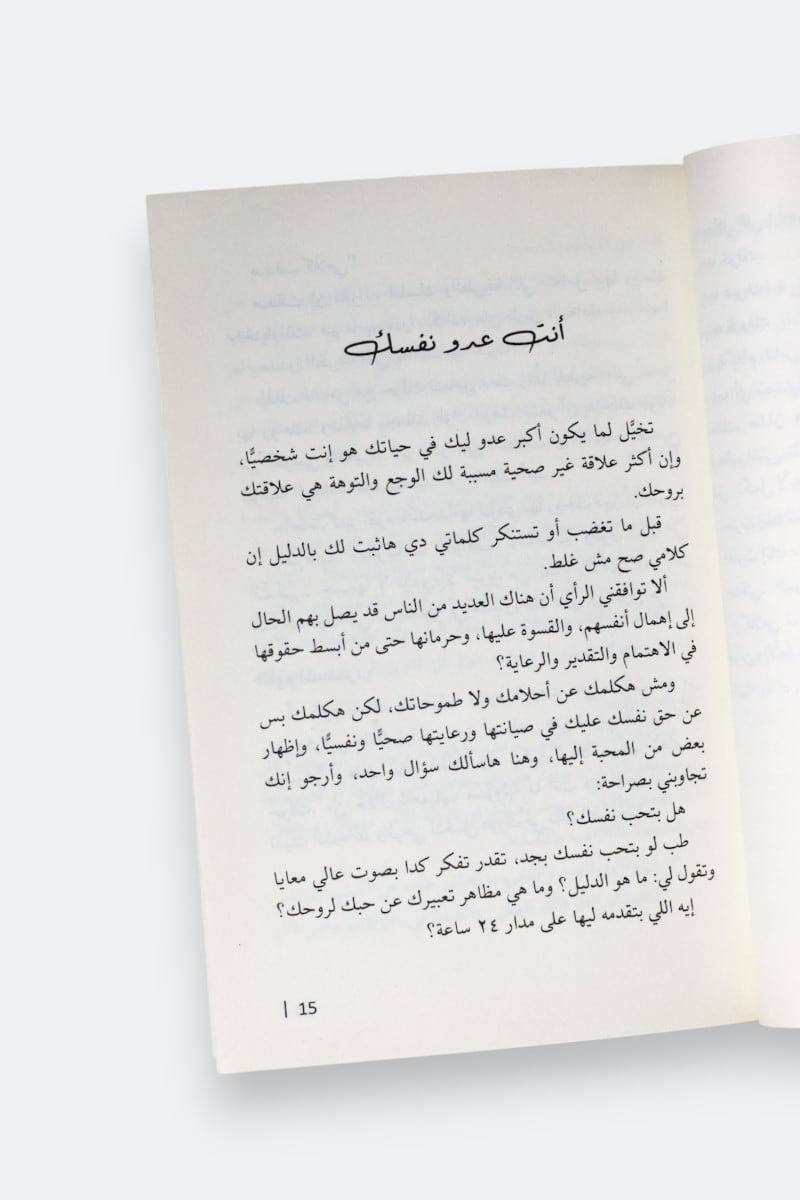 أنت عدو نفسك
تخيَّل لما يكون أكبر عدو ليك في حياتك هو إنت شخصيًّا،
وإن أكثر علاقة غير صحية مسببة لك الوجع والتوهة هي علاقتك
بروحك.
قبل ما تغضب أو تستنكر كلماتي دي هاثبت لك بالدليل إن
كلامي صح مش غلط.
ألا توافقني الرأي أن هناك العديد من الناس قد يصل بهم الحال
إلى إهمال أنفسهم، والقسوة عليها، وحرمانها حتى من أبسط حقوقها
في الاهتمام والتقدير والرعاية؟
ومش هكلمك عن أحلامك ولا طموحاتك، لكن هكلمك بس
عن حق نفسك عليك في صيانتها ورعايتها صحيًّا ونفسيًّا، وإظهار
بعض من المحبة إليها، وهنا هاسألك سؤال واحد، وأرجو إنك
تجاوبني بصراحة:
هل بتحب نفسك؟
طب لو بتحب نفسك بجد، تقدر تفكر كدا بصوت عالي معايا
وتقول لي: ما هو الدليل؟ وما هي مظاهر تعبيرك عن حبك لروحك؟
إيه اللي بتقدمه ليها على مدار ٢٤ ساعة؟
15 |